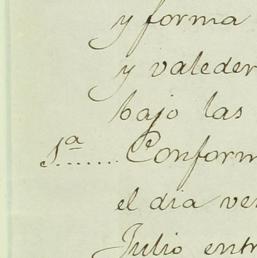 y forma
y valeder
bajo las
1ª....... Conform
el dia ve
Julio entr